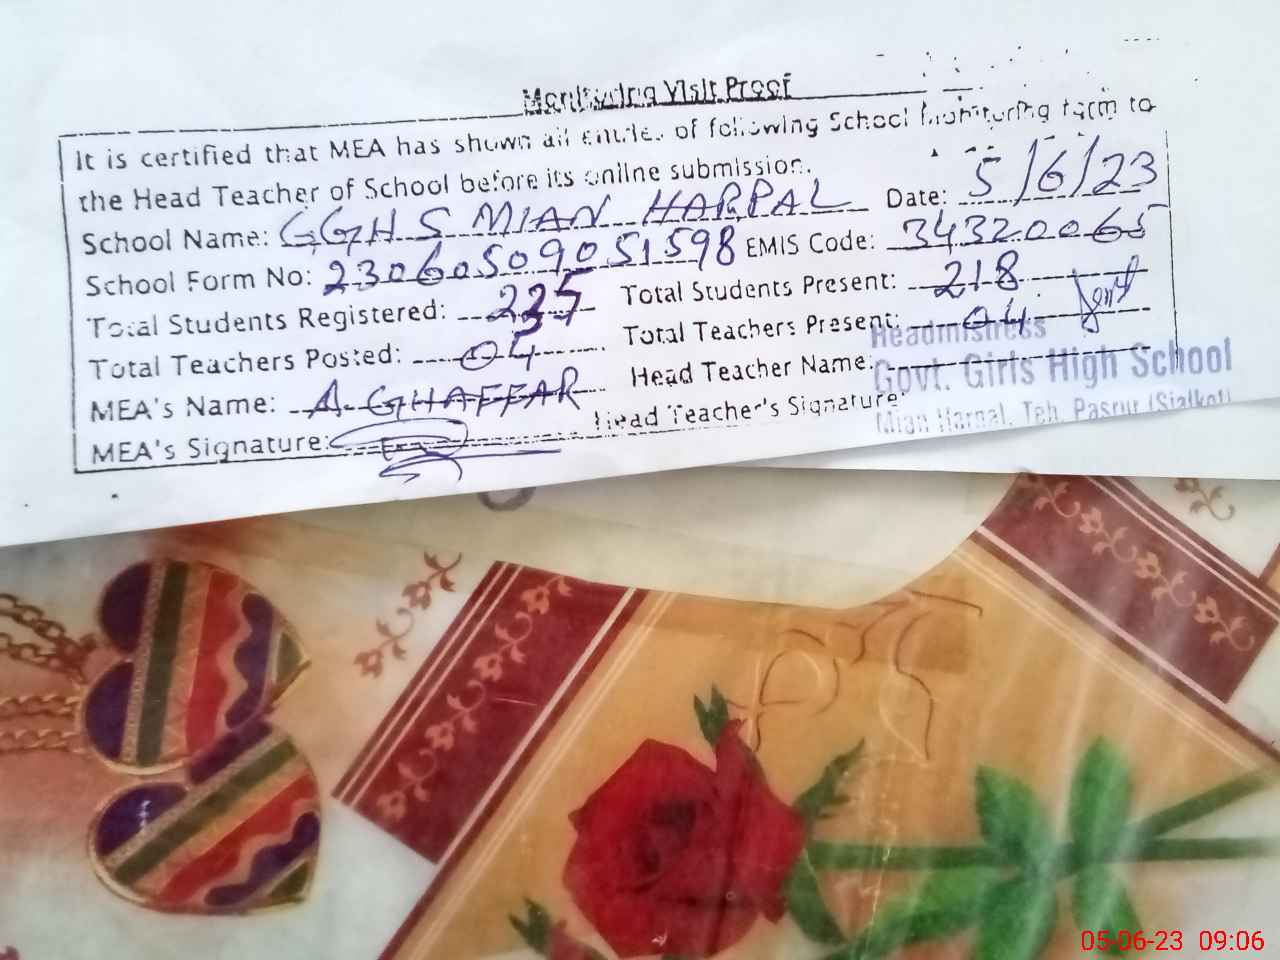 Monitoring Visit Proof
It is certified that MEA has shown all entries of following School Monitoring form to
the Head Teacher of School before its online submission.
School Name: GGHS MIAN HARPAL Date: 5/6/23
School Form No: 23060509051598 EMIS Code: 34320065
Total Students Registered: Total Students Present: 218
Total Teachers Posted: 04 Total Teachers Present: 04
MEA's Name: A. GHAFFAR Head Teacher Name:
MEA's Signature: Head Teacher's Signature:
Headmistress
Govt. Girls High School
Mian Harpal, Teh. Pasrur (Sialkot)
05-06-23 09:06